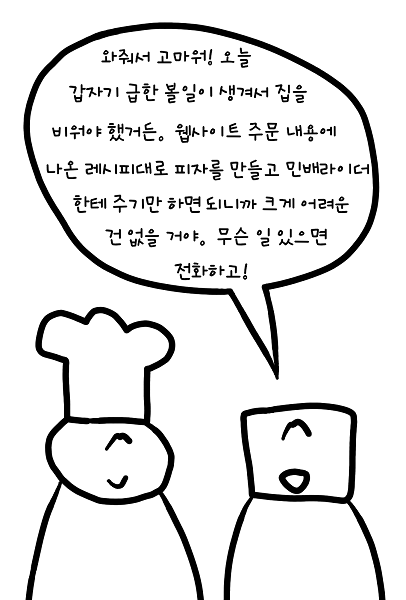 와줘서 고마워! 오늘
갑자기 급한 볼일이 생겨서 집을
비워야 했거든. 웹사이트 주문 내용에
나온 레시피대로 피자를 만들고 민배라이더
한테 주기만 하면 되니까 크게 어려운
건 없을 거야. 무슨 일 있으면
전화하고!